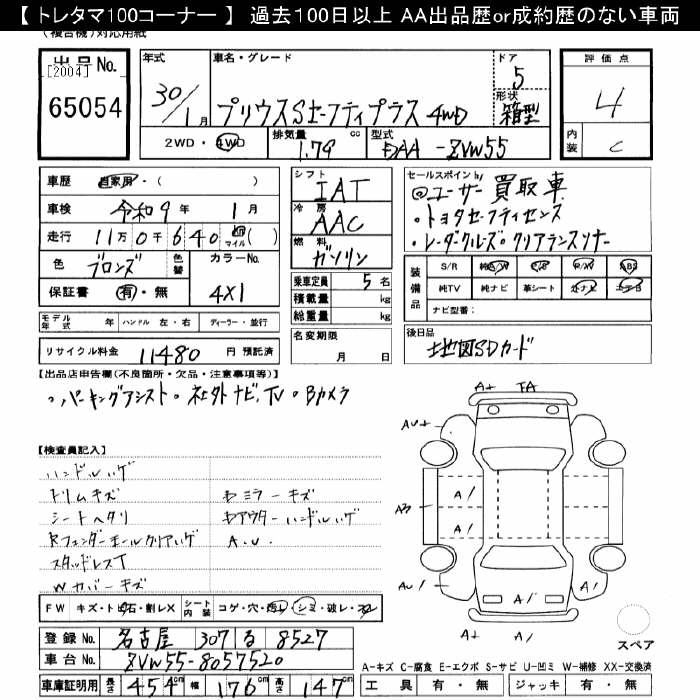 【 トレタマ100コーナー 】 過去100日以上 AA出品歴or成約歴のない車両
(複合機)対応用紙
出品No.
[2004]
65054
年式
30/1月
車名・グレード
プリウスSセーフティプラス 4WD
ドア
5
形状
箱型
2WD・4WD
排気量 1.79 cc
型式 DAA -ZVW55
評価点
4
内装
C
車歴 自家用・( )
車検 令和9年 1月
走行 11万0千640 マイル ( )
色 ブロンズ 色替 カラーNo.
保証書 有・無 4X1
モデル年式 年 ハンドル 左・右 ディーラー・並行
リサイクル料金 11480 円 預託済
シフト
IAT
冷房
AAC
燃料
ガソリン
乗車定員 5 名
積載量 kg
総重量 kg
名変期限
月 日
セールスポイント by
@ユーザー買取車
・トヨタセーフティセンス
・レーダークルーズ・クリアランスソナー
装備品
S/R 純A/W P/S P/W ABS
純TV 純ナビ 革シート 社ナビ
ナビ型番：
後日品
地図SDカード
【出品店申告欄(不良箇所・欠品・注意事項等)】
・パーキングアシスト・社外ナビ,TV・Bカメラ
【検査員記入】
ハンドルハゲ
トリムキズ
シートヘタリ
Rフェンダーモールクリアハゲ
スタッドレスT
Wカバーキズ
ミラーキズ
アウターハンドルハゲ
A.U.
A+ FA
AU+
A3
A/
A/
A/
AU/
A/
A/
A/
スペア
FW キズ・ト石・割レX シート内装 コゲ・穴・・シミ・破レ・
登録No. 名古屋 307 る 8527
車台No. ZVW55-8057520
車庫証明用 長さ 454 cm 幅 176 cm 高さ 147 cm
A-キズ C-腐食 E-エクボ S-サビ U-凹ミ W-補修 XX-交換済
工具 有・無 ジャッキ 有・無